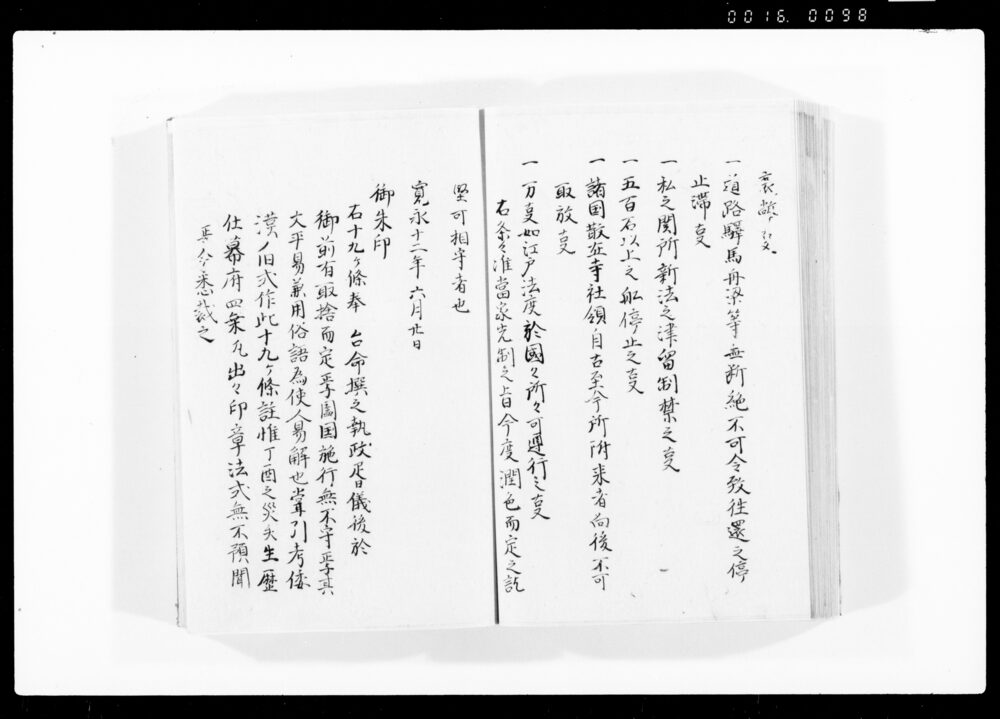 0016. 0098
衰弊事
一 道路驛馬舟梁等無断絶不可令致往還之停
止滞事
一 私之関所新法之津留制禁之事
一 五百石以上之舩停止之事
一 諸国散在寺社領自古至今所附来者向後不可
取放事
一 万事如江戸法度於國々所々可遵行之事
右条々准當家先制之旨今度潤色而定之訖
堅可相守者也
寛永十二年六月廿日
御朱印
右十九ヶ條奉 台命撰之執政
御前有取捨而定 闔国施行無不守 其
大平易兼用俗語為使人易解也嘗引考倭
漢ノ旧式作此十九ヶ條註惟丁酉之災失 歴
仕幕府四 凡出々印章法式無不預聞
今悉載之